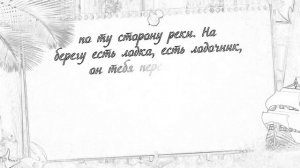 по ту сторону реки. На
берегу есть лодка, есть лодочник,
он тебя пере